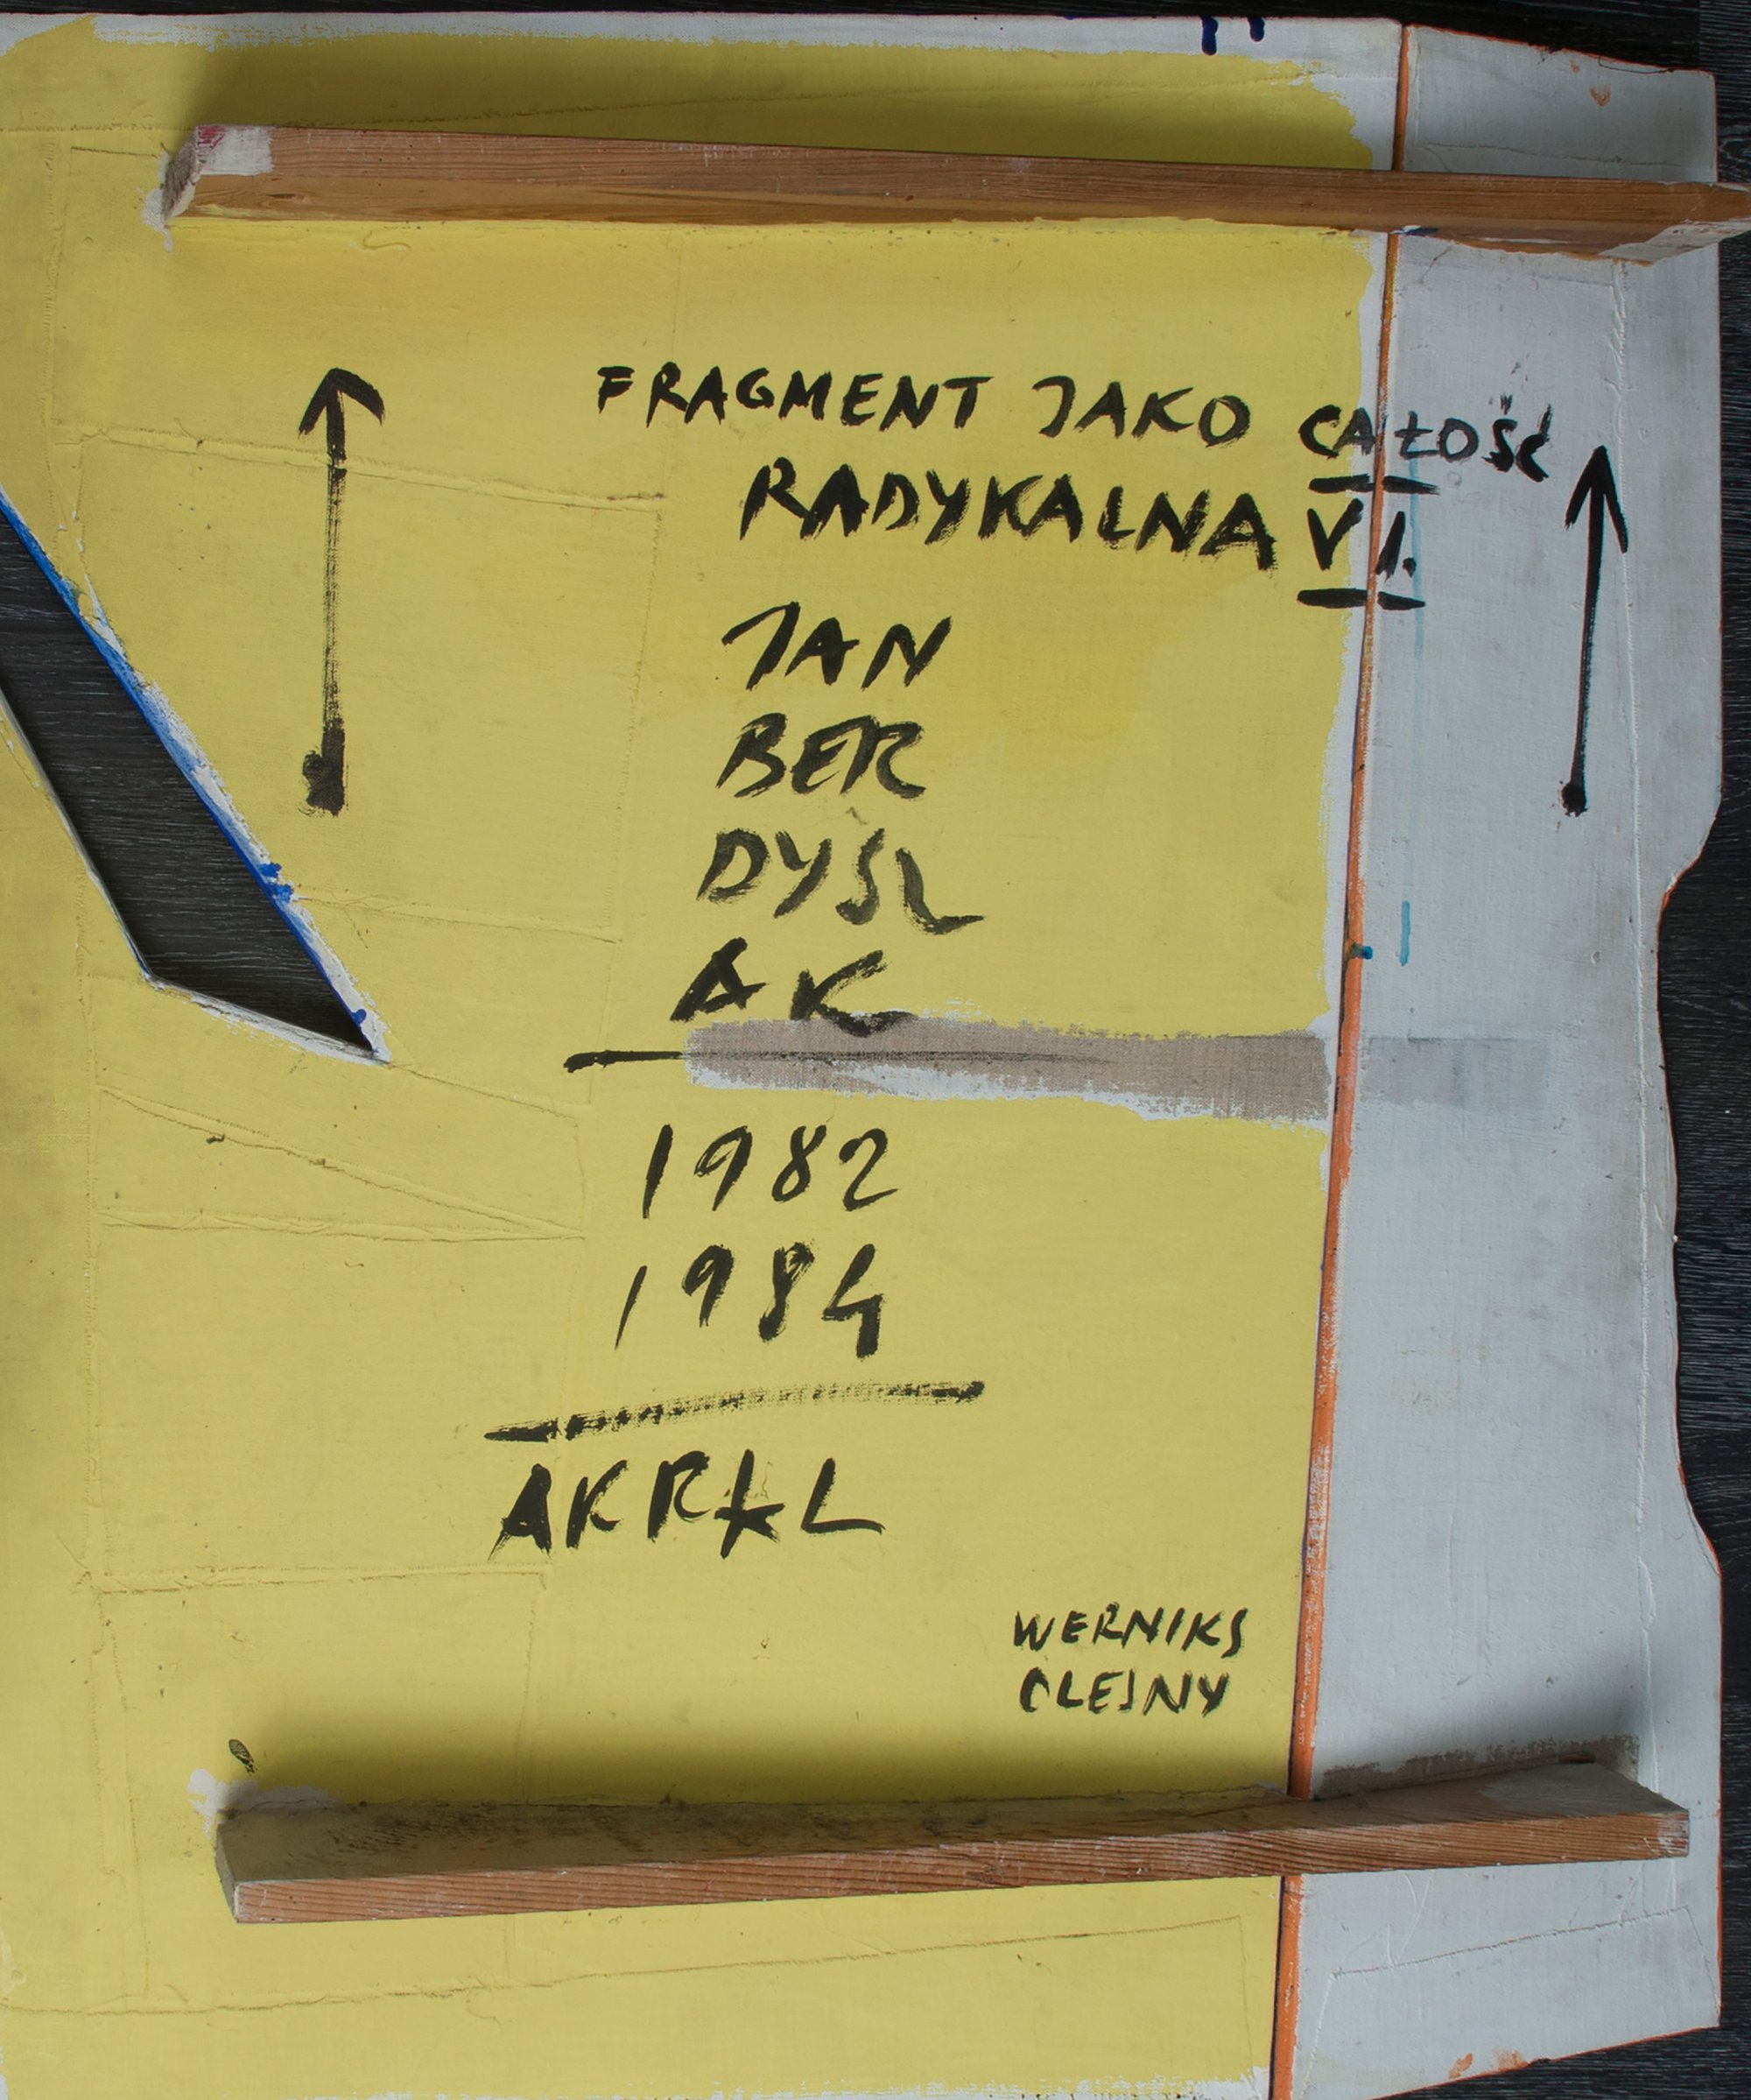 FRAGMENT JAKO CAŁOŚĆ
RADYKALNA VI.
JAN
BER
DYSZ
AK
1982
1984
AKRYL
WERNIKS
OLEJNY